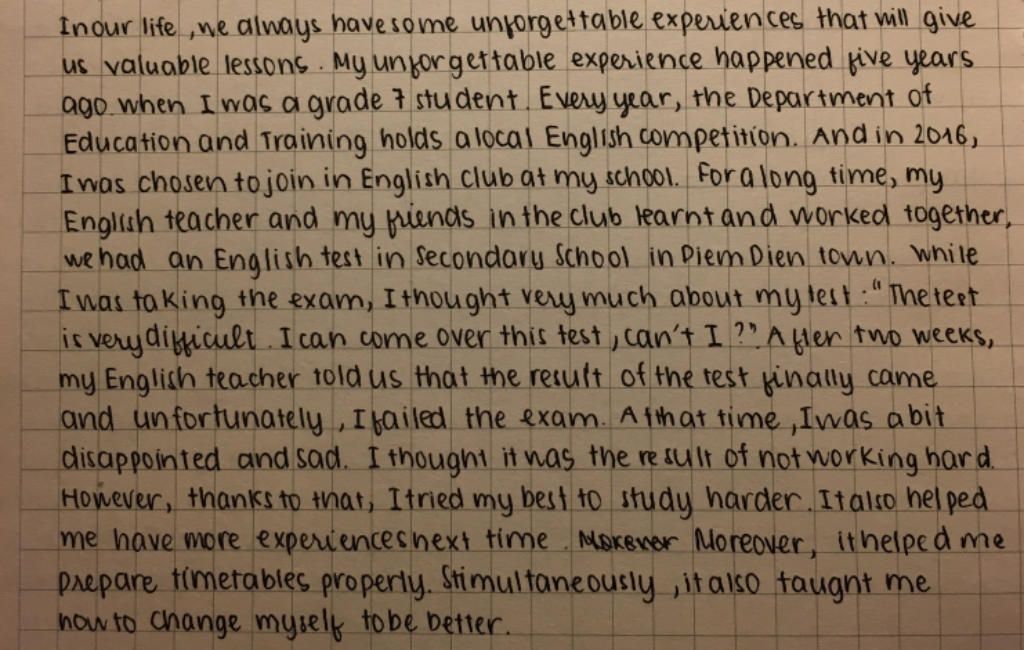 In our life, we always have some unforgettable experiences that will give
us valuable lessons. My unforgettable experience happened five years
ago when I was a grade 7 student. Every year, the Department of
Education and Training holds a local English competition. And in 2016,
I was chosen to join in English club at my school. For a long time, my
English teacher and my friends in the club learnt and worked together,
we had an English test in Secondary School in Diem Dien town. While
I was taking the exam, I thought very much about my test : "The test
is very difficult. I can come over this test, can't I ??". After two weeks,
my English teacher told us that the result of the test finally came
and unfortunately, I failed the exam. At that time, I was a bit
disappointed and sad. I thought it was the result of not working hard.
However, thanks to that, I tried my best to study harder. It also helped
me have more experiences next time. Morever Moreover, it helped me
prepare timetables properly. Stimultaneously, it also taught me
how to change myself to be better.